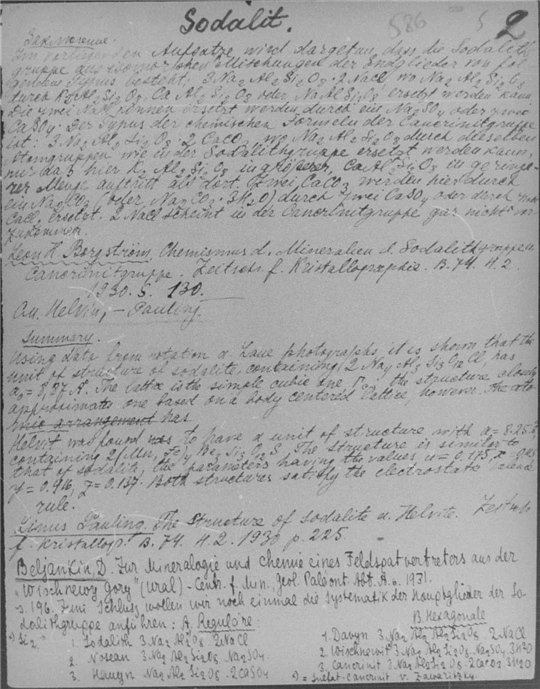 Sodalit.
586 5 2
Заключение.
Im vorliegenden Aufsatze wird dargetan, dass die Sodalith-
gruppe aus isomorphen Mischungen der Endglieder von fol-
gendem Typus besteht. 3 Na2 Al2 Si2 O8 · 2 NaCl wo Na2 Al2 Si2 O8
durch K2 Al2 Si2 O8 Ca Al2 Si2 O8 oder Na Al Si3 O8 ersetzt werden kann
Die zwei NaCl können ersetzt werden durch ein Na2SO4 oder zwei
CaSO4. Der Typus der chemischen Formeln der Cancrinitgruppe
ist: 3 Na2 Al2 Si2 O8 2 CaCO3 wo Na2 Al2 Si2 O8 durch dieselben
Atomgruppen wie in der Sodalithgruppe ersetzt werden kann,
nur dass hier K2 Al2 Si2 O8 in grösserer, Ca Al2 Si2 O8 in geringe-
rer Menge auftritt als dort. Zwei CaCO3 werden hier durch
ein Na2CO3 (oder Na2CO3 · 3H2O) durch zwei CaSO4 oder durch
CaCl2 ersetzt. 2 NaCl scheint in der Cancrinitgruppe gar nicht vor-
zukommen.
Leon H. Borgström. Chemismus d. Mineralien d. Sodalithgruppe u.
Cancrinitgruppe. Zeitschr. f. Kristallographie. B. 74. H. 2.
1930. S. 130.
Au. Helvin — Pauling.
Summary.
Using data from rotation a. Laue photographs, it is shown that the
unit of structure of sodalite, containing 2 Na4 Al3 Si3 O12 Cl, has
a0 = 8,87 A. The lattice is the simple cubic one Γc, the structure closely
approximates one based on a body centered lattice, however. The ato-
mic arrangement has
Helvit was found to have a unit of structure with a = 8.25 A
containing 2 (Mn, Fe)4 Be3 Si3 O12 S. The structure is similar to
that of sodalite, the parameters having the values u = 0.175 x =
y = 0.416, z = 0.137. Both structures satisfy the electrostatic valence
rule.
Linus Pauling. The structure of sodalite a. Helvite. Zeitschr
f. Kristallogr. B. 74. H. 2. 1930 p. 225.
Beljankin, D. Zur Mineralogie und Chemie eines Feldspatvertreters aus der
"Wischnewy gory" (Ural) – Centr. f. Min. Geol. Paläont Abt. A. 1931.
S. 196. Zum Schluss wollen wir noch einmal die Systematik der Hauptglieder der So-
dalithgruppe anführen: A. Reguläre:
1. Sodalith 3 Na2 Al2 Si2 O8 2 NaCl
2. Nosean 3 Na2 Al2 Si2 O8 Na2SO4
3. Hauyn Na2 Al2 Si2 O8 2 CaSO4
B. Hexagonale
1. Davyn 3 Na2 Al2 Si2 O8 2 NaCl
2. Wischnewit 3 Na2 Al2 Si2 O8 Na2SO4 3H2O
3. Cancrinit 3 Na2 Al2 Si2 O8 2 CaCO3 3H2O
= sulfat-cancrinit v. Zawaritzky